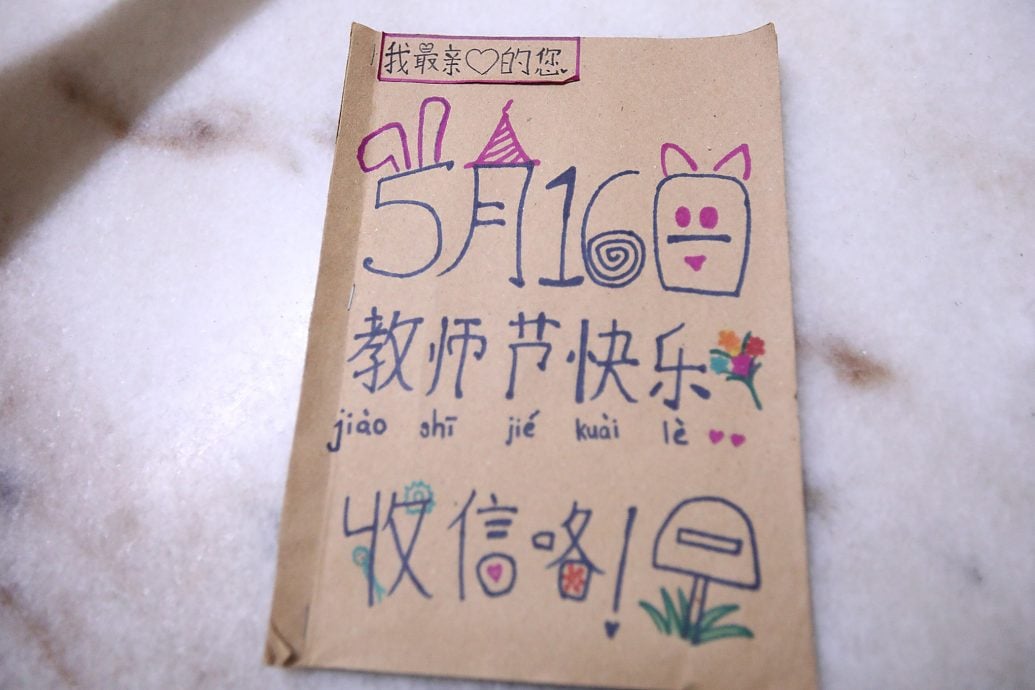 我最亲♡的您
5月16日
教师节快乐
jiào shī jié kuài lè
收信咯!